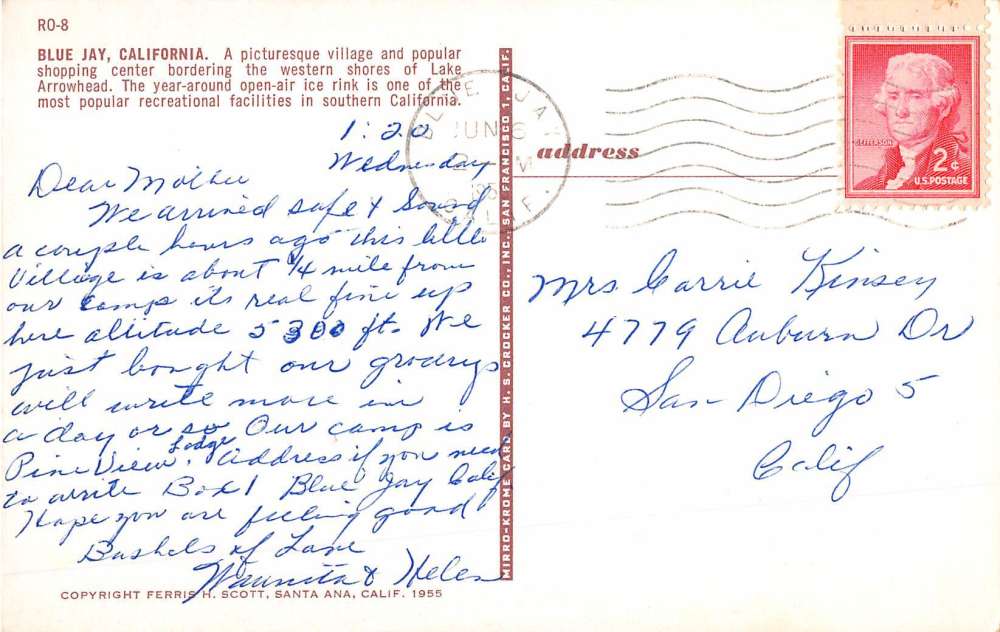 RO-8
BLUE JAY, CALIFORNIA. A picturesque village and popular
shopping center bordering the western shores of Lake
Arrowhead. The year-around open-air ice rink is one of the
most popular recreational facilities in southern California.
1:20
Wednesday
Dear Mother
We arrived safe & Sound
a couple hours ago this little
Village is about 1/4 mile from
our camp its real fine up
here altitude 5300 ft. We
just bought our grocerys
will write more in
a day or so Our camp is
Pine View Lodge. Address if you need
to write Box 1 Blue Jay Calif
Hope you are feeling good
Bushels of Love
Waunita & Helen
COPYRIGHT FERRIS H. SCOTT, SANTA ANA, CALIF. 1955
MIRRO-KROME CARD BY H. S. CROCKER CO., INC., SAN FRANCISCO 1, CALIF.
BLUE JAY
JUN 6
PM
CALIF.
address
JEFFERSON
2¢
U.S. POSTAGE
Mrs Carrie Kinsey
4779 Auburn Dr
San Diego 5
Calif